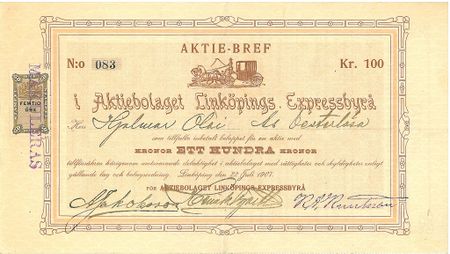 AKTIE-BREF
N:o 083 Kr. 100
i Aktiebolaget Linköpings Expressbyrå
Hjalmar Olai Ås Västerlösa
som tillfullo inbetalt beloppet för en aktie med
KRONOR ETT HUNDRA KRONOR
tillförsäkras härigenom motsvarande delaktighet i aktiebolaget med rättigheter och skyldigheter enligt
gällande lag och bolagsordning. Linköping den 22 Juli 1907.
FÖR AKTIEBOLAGET LINKÖPINGS EXPRESSBYRÅ
FEMTIO
ÖRE
MAKULERAS